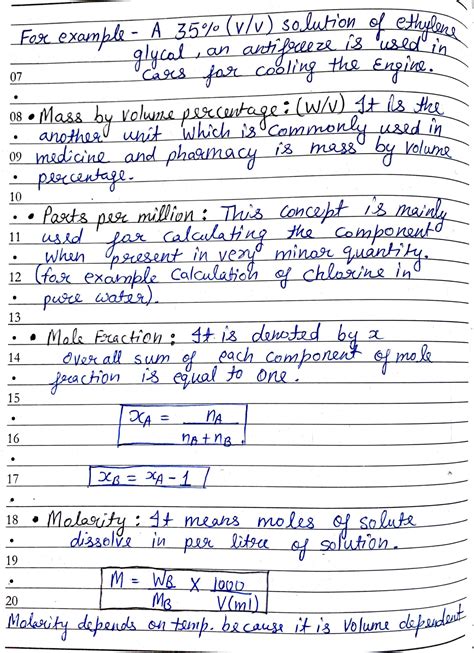 For example - A 35% (v/v) solution of ethylene
glycal, an antifreeze is used in
07 cars for cooling the Engine.
08 • Mass by volume percentage : (W/V) It is the
another unit which is commonly used in
09 medicine and pharmacy is mass by volume
percentage.
10
• Parts per million : This concept is mainly
11 used for calculating the component
when present in very minor quantity.
12 (for example Calculation of chlorine in
pure water).
13
• Mole Fraction : It is denoted by x
14 over all sum of each component of mole
fraction is equal to one.
15
xA = nA / nA + nB
16
17 xB = xA - 1
18 • Molarity : It means moles of solute
dissolve in per litre of solution.
19
M = WB / MB X 1000 / V(ml)
20
Molarity depends on temp. because it is volume dependent